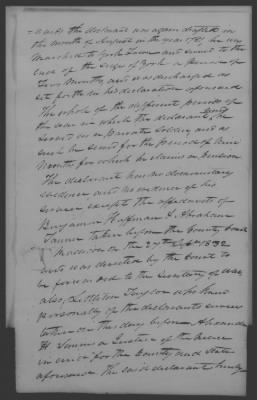 = wards the declarant was again drafted in
the month of August in the year 1781 he was
marched to York Town and served to the
end of the siege of York a period of
two months and was discharged as
set forth in his declaration aforesaid
The whole of the different periods of
the war in which the declarant, he
served as a private soldier and as
such he served for the period of nine
months for which he claims a pension
The declarant has no documentary
evidence and no evidence of his
service except the affidavits of
Benjamin Huffman & Abraham
Tanner taken before the County Court
Madison on the 27th Sept 1832
and was directed by the Court to
be forwarded to the Secretary of War
also, Littleton Taylor who knew
personally of the declarants services
taken on this day before Alexander
H. a Justice of the Peace
in and for the County and State
aforesaid The said declarant hereby